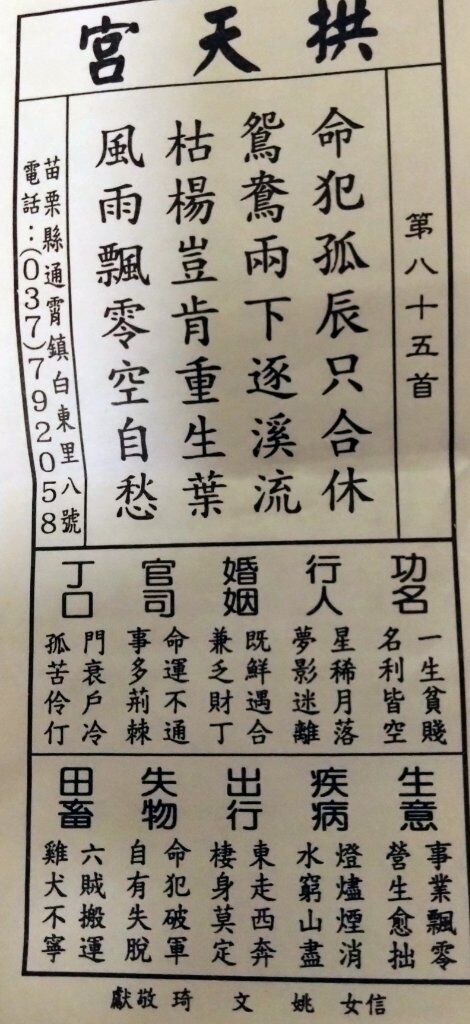 拱天宮
第八十五首
命犯孤辰只合休
鴛鴦兩下逐溪流
枯楊豈肯重生葉
風雨飄零空自愁
苗栗縣通霄鎮白東里八號
電話：(037)792058
功名
一生貧賤
名利皆空
行人
星稀月落
夢影迷離
婚姻
既鮮遇合
兼乏財丁
官司
命運不通
事多荊棘
丁口
門衰戶冷
孤苦伶仃
生意
事業飄零
營生愈拙
疾病
燈燼煙消
水窮山盡
出行
東走西奔
棲身莫定
失物
命犯破軍
自有失脫
田畜
六賊搬運
雞犬不寧
信女 姚 文 琦 敬獻